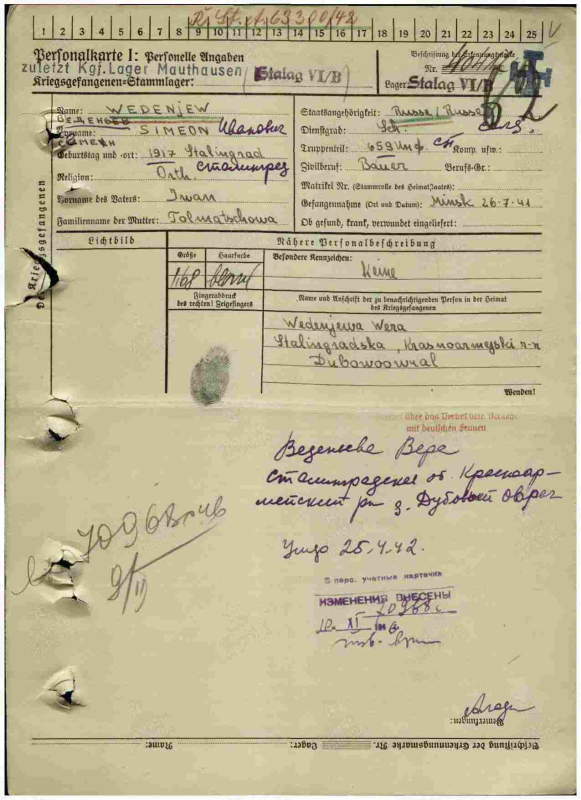 R. St. A. 63300/42
1 2 3 4 5 6 7 8 9 10 11 12 13 14 15 16 17 18 19 20 21 22 23 24 25
Personalkarte I: Personelle Angaben
zuletzt Kgf. Lager Mauthausen
Kriegsgefangenen=Stammlager: Stalag VI/B
Beschriftung der Erkennungsmarke
Nr.
Lager: Stalag VI/B
Des Kriegsgefangenen
Name: WEDENJEW
ВЕДЕНЬЕВ
Vorname: SIMEON Иванович
СЕМЕН
Geburtstag und -ort: 1917 Stalingrad
Religion: Orth. Сталинград
Vorname des Vaters: Iwan
Familienname der Mutter: Tolmatschowa
Staatsangehörigkeit: Russe/Russe
Dienstgrad: Sch.
Truppenteil: 659 Инф. Komp. usw.:
Zivilberuf: Bauer Berufs-Gr.:
Matrikel Nr. (Stammrolle des Heimatstaates):
Gefangennahme (Ort und Datum): Minsk 26-7-41
Ob gesund, krank, verwundet eingeliefert:
Lichtbild
Größe
Haarfarbe
1.68 blond
Fingerabdruck
des rechten! Zeigefingers
Nähere Personalbeschreibung
Besondere Kennzeichen:
Keine
Name und Anschrift der zu benachrichtigenden Person in der Heimat
des Kriegsgefangenen
Wedenjewa Wera
Stalingradska, Krasnoarmejski r-n
Dubowoowral
Wenden!
über das Verbot
mit deutschen Frauen
Веденьева Вера
Сталинградская об. Красноар-
мейский рн д. Дубовый Овраг
Умер 25.4.42.
В перс. учетные карточки
ИЗМЕНЕНИЯ ВНЕСЕНЫ
XI
Bemerkungen:
Beschriftung der Erkennungsmarke Nr. Lager: Name: